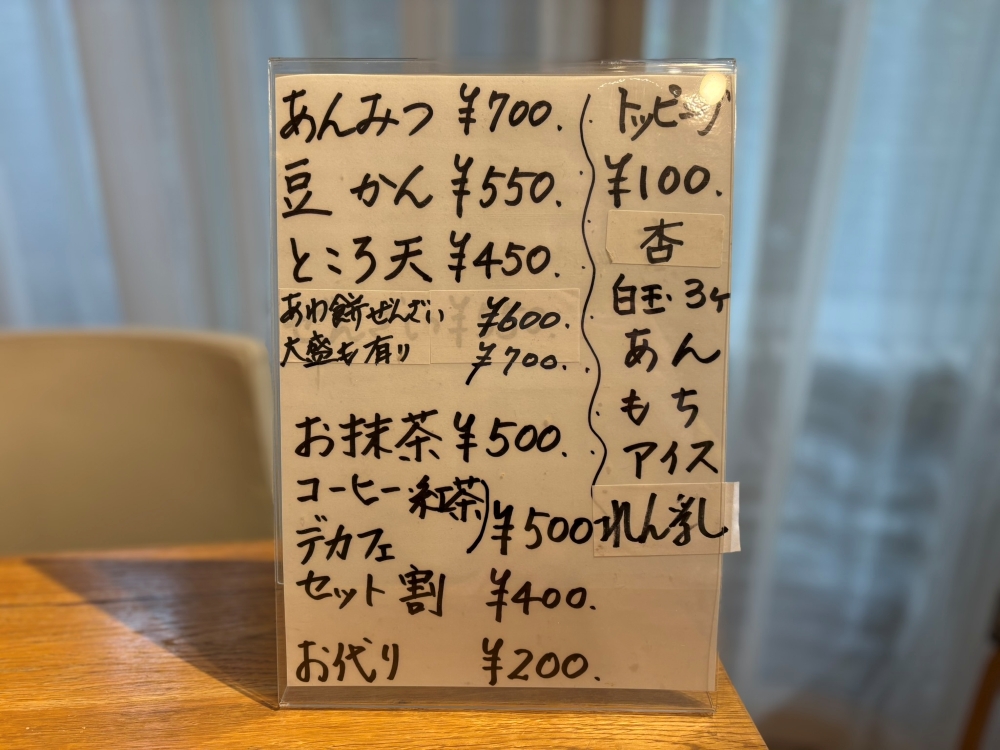 あんみつ ¥700.
豆かん ¥550.
ところ天 ¥450.
あわ餅ぜんざい ¥600.
大盛も有り ¥700.
お抹茶 ¥500.
コーヒー・紅茶
デカフェ ¥500
セット割 ¥400.
お代り ¥200.
トッピング
¥100.
杏
白玉・3ヶ
あん
もち
アイス
れん乳